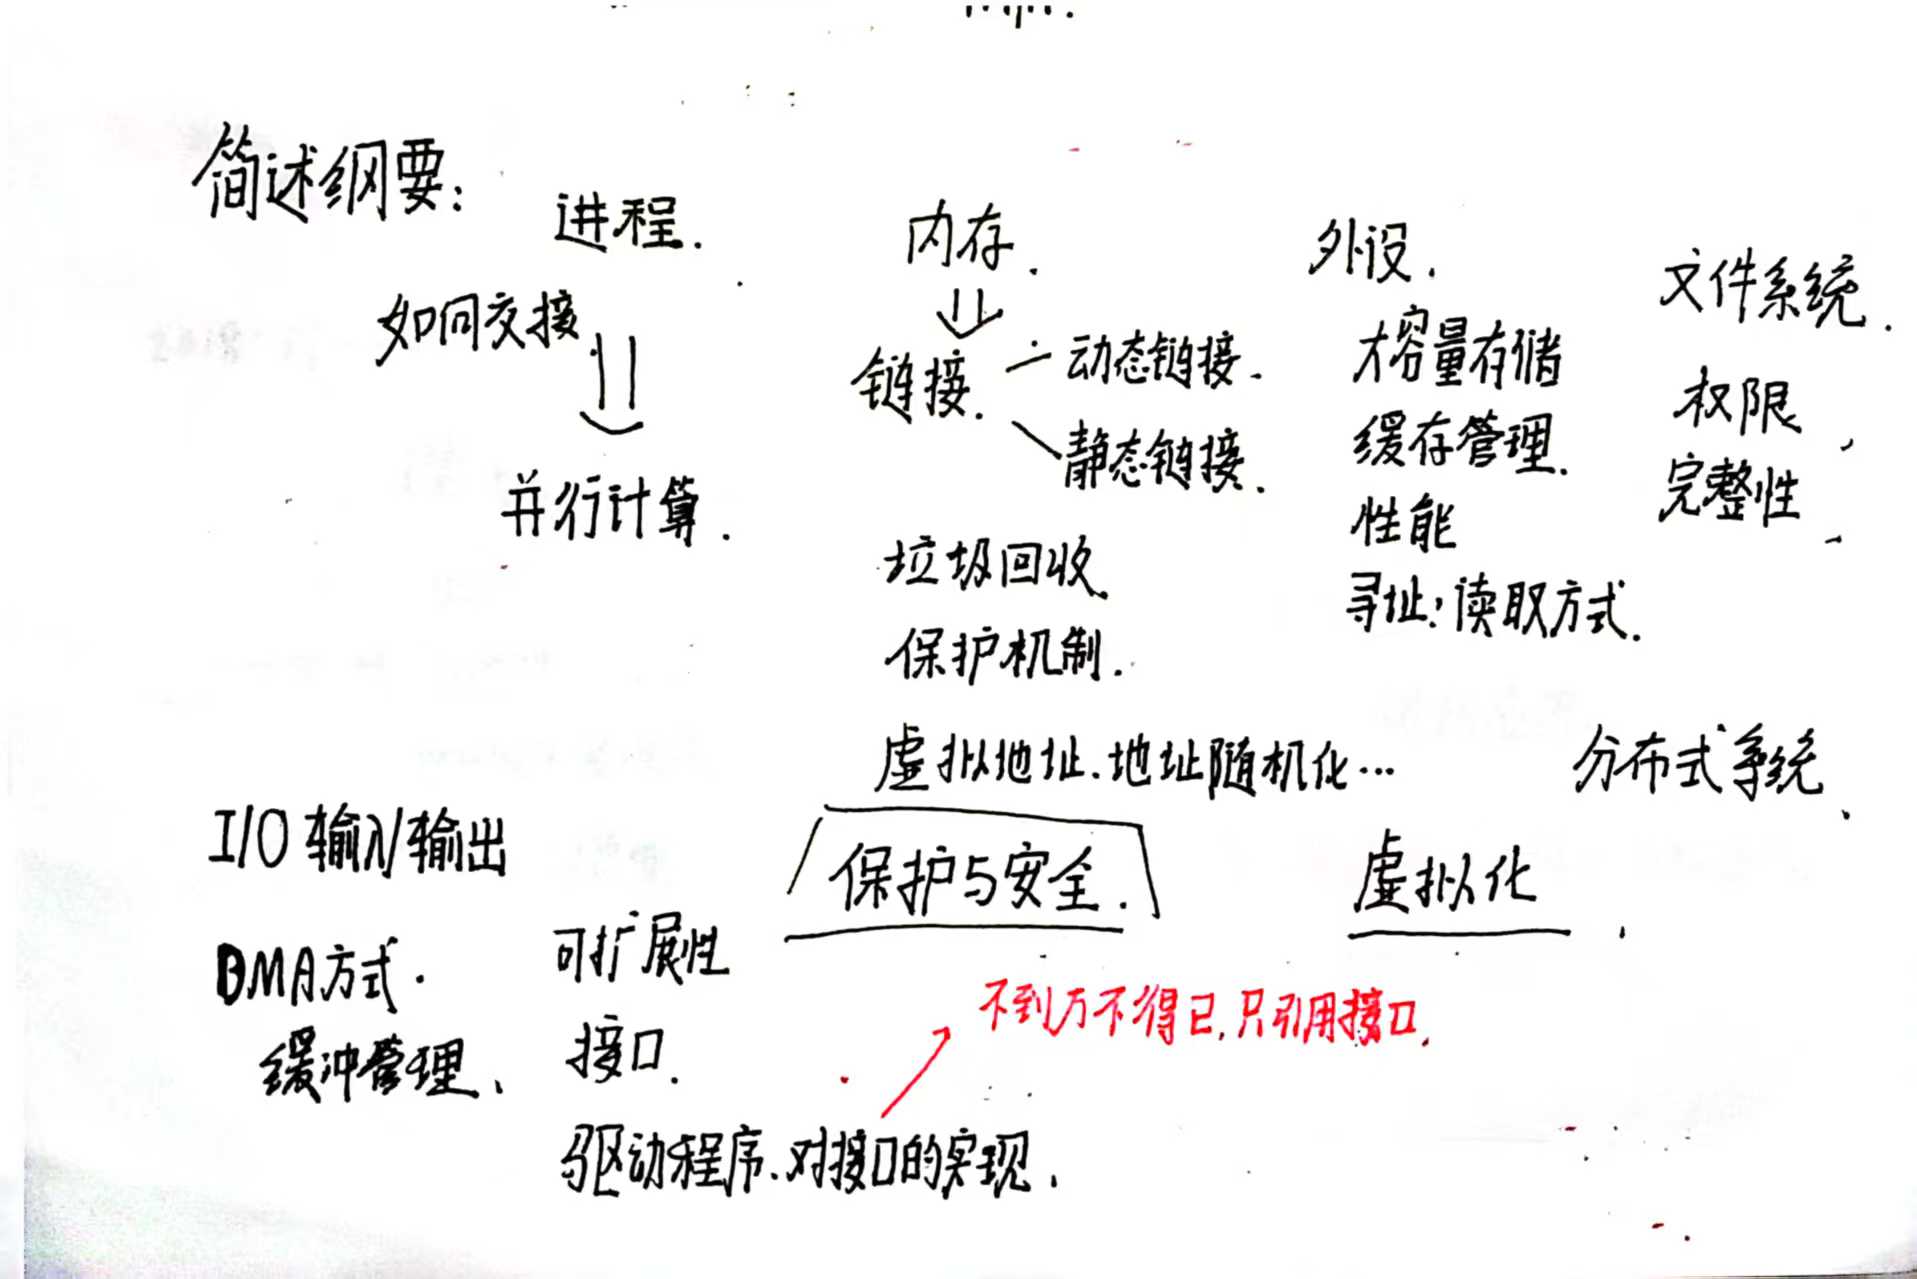 简述纲要:
进程.
内存.
外设.
文件系统.
如何交接.
并行计算.
链接.
动态链接.
静态链接.
垃圾回收.
保护机制.
虚拟地址.地址随机化...
大容量存储
缓存管理.
性能
寻址:读取方式.
权限,
完整性.
分布式系统.
I/O 输入/输出
保护与安全.
虚拟化.
DMA方式.
缓冲管理、
可扩展性
接口.
驱动程序.对接口的实现.
不到万不得已,只引用接口.